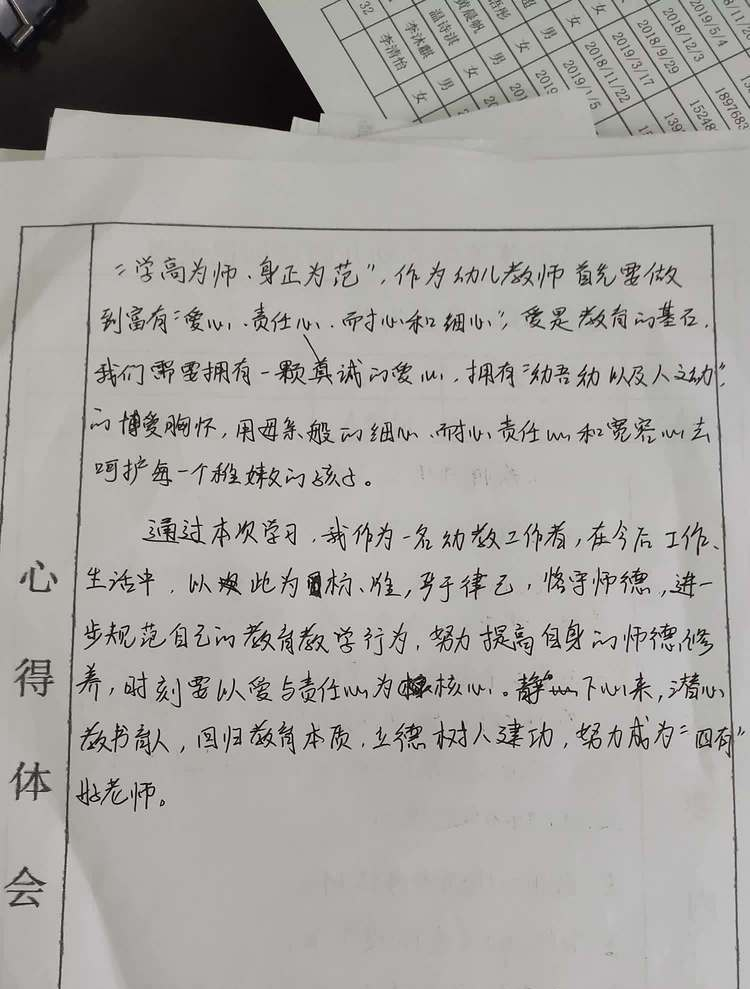 32
李清怡
女
李沐麒
男
温诗淇
女
2019/1/5
黄晨帆
男
2018/11/22
女
2019/3/17
2018/9/29
2018/12/3
2019/5/4
1897683
15248
心得体会
“学高为师、身正为范”,作为幼儿教师首先要做
到富有“爱心、责任心、耐心和细心”,爱是教育的基石,
我们需要拥有一颗真诚的爱心,拥有“幼吾幼以及人之幼”
的博爱胸怀,用母亲般的细心、耐心、责任心和宽容心去
呵护每一个稚嫩的孩子。
通过本次学习,我作为一名幼教工作者,在今后工作、
生活中,以此为目标、准,严于律己,恪守师德,进一
步规范自己的教育教学行为,努力提高自身的师德修
养,时刻要以爱与责任心为核心。静下心来,潜心
教书育人,回归教育本质,立德树人建功,努力成为“四有”
好老师。